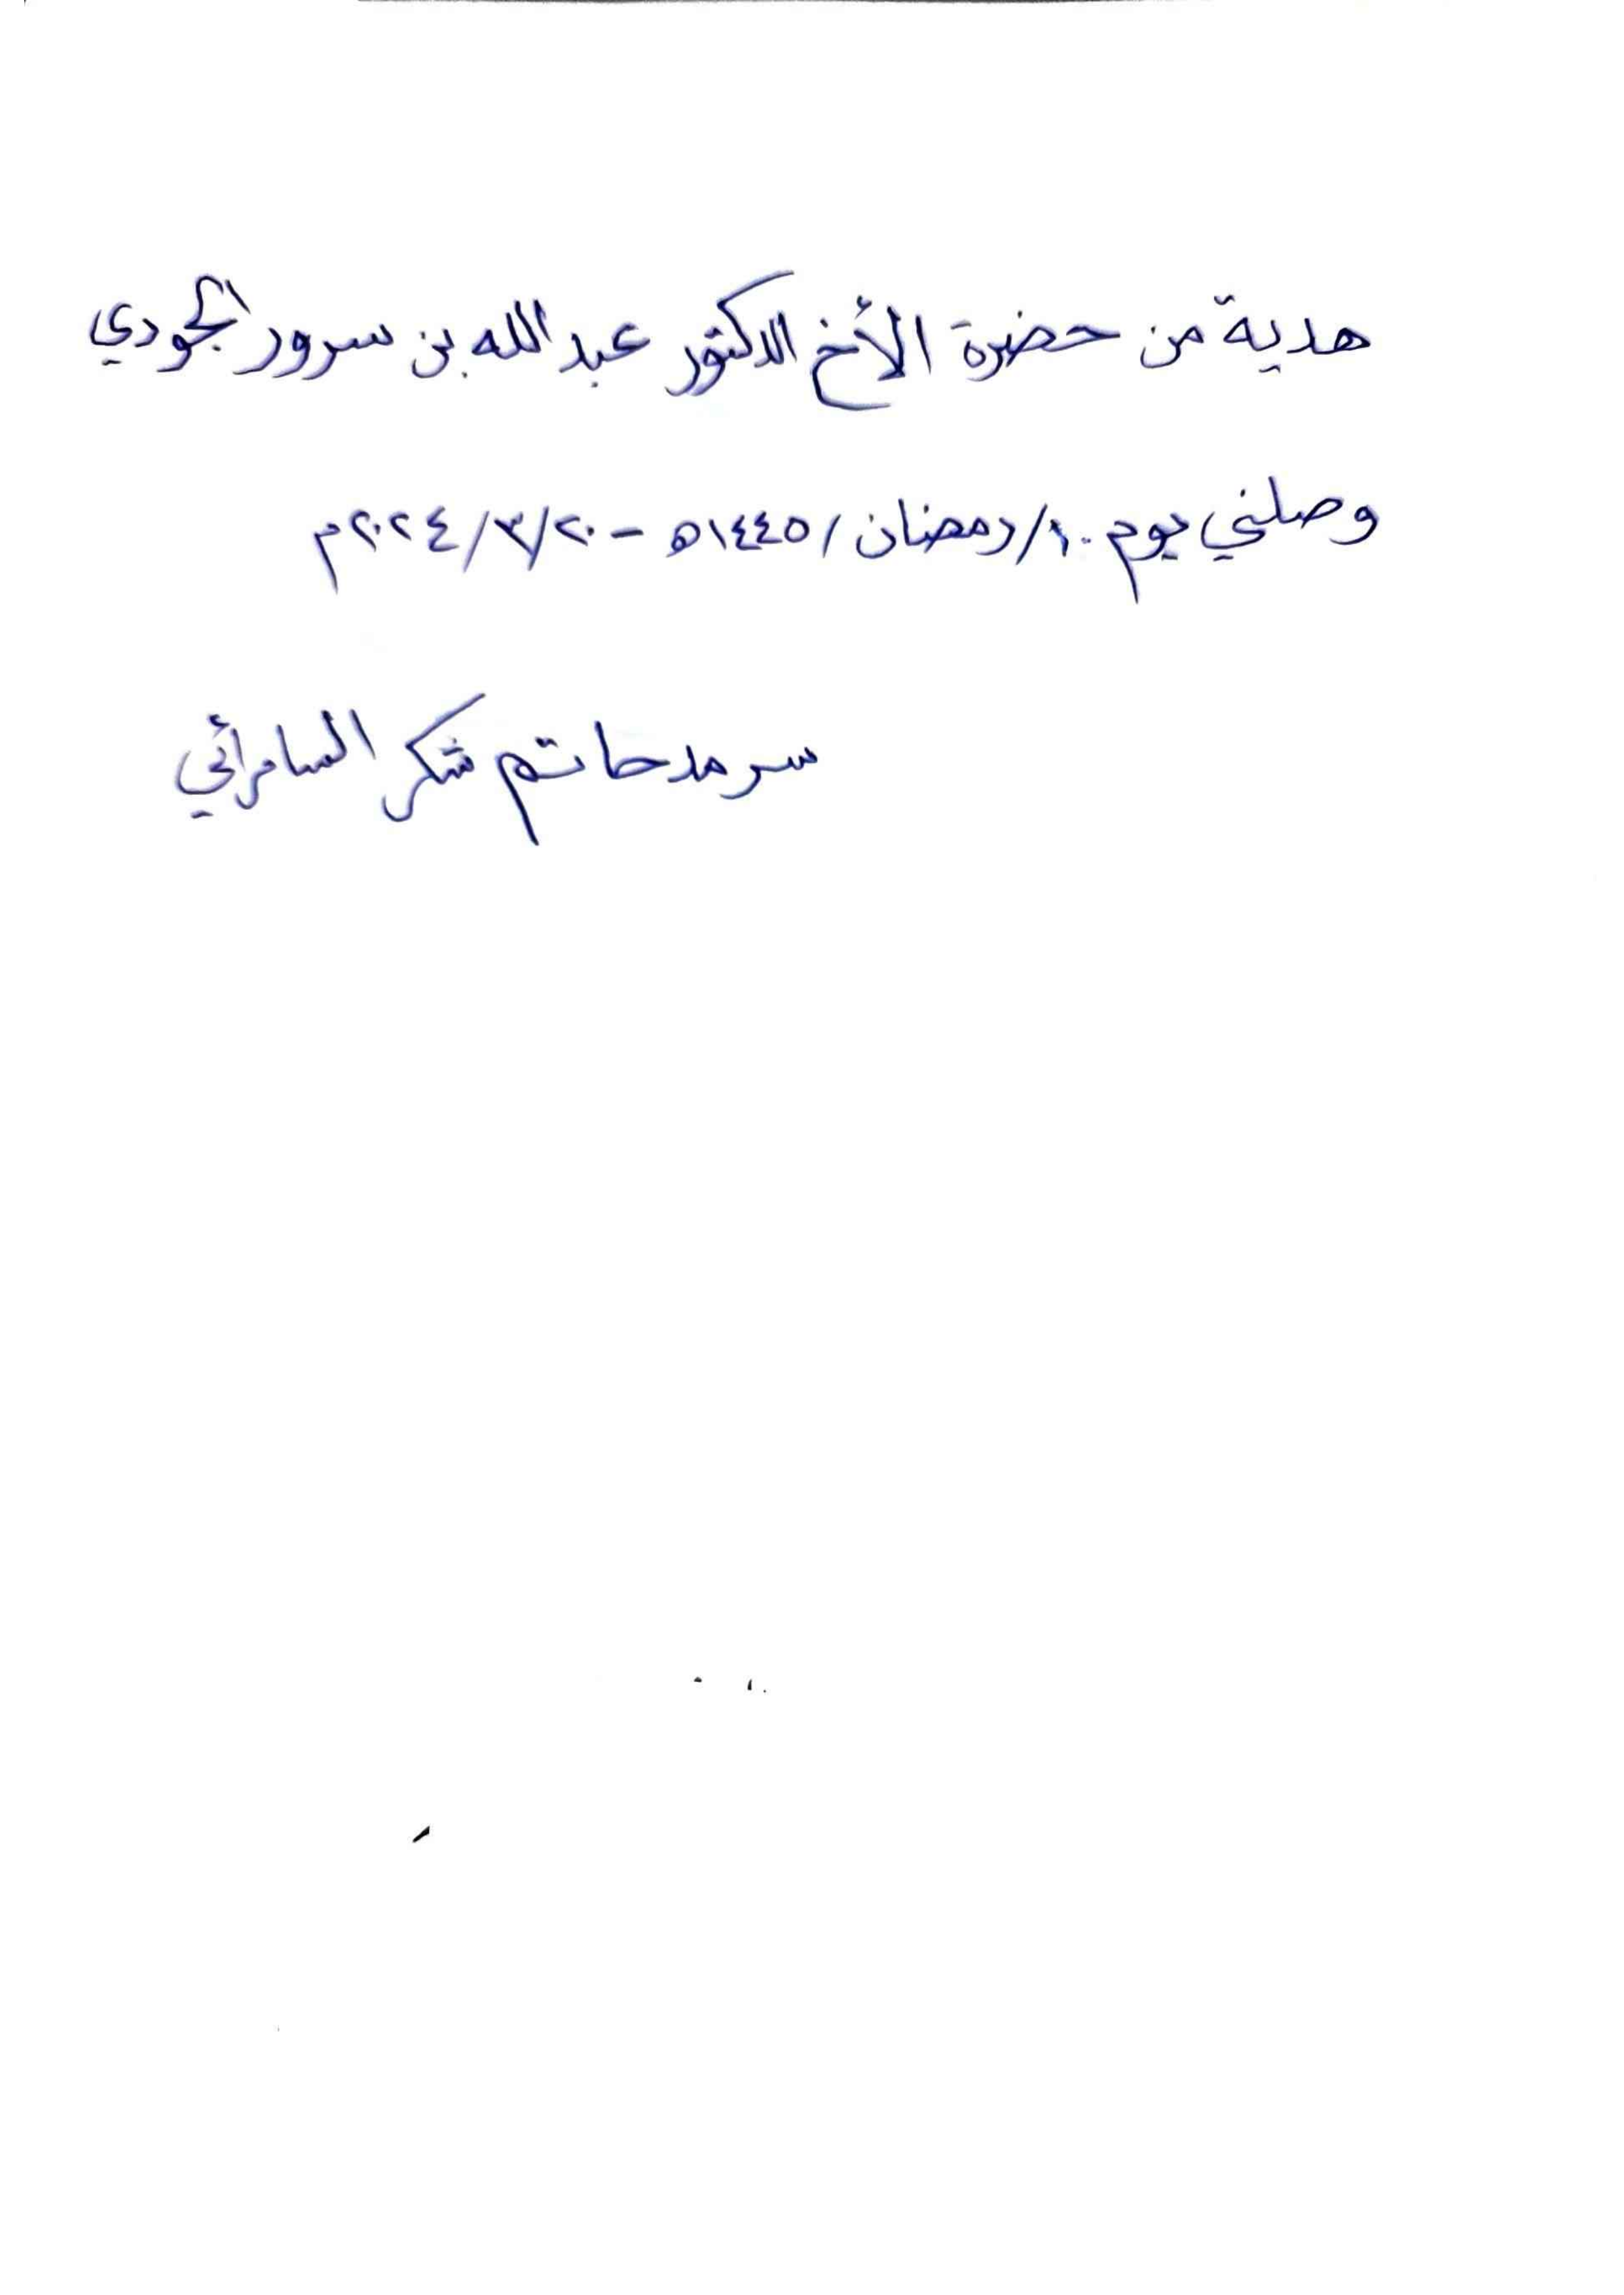 هدية من حضرة الأخ الدكتور عبد الله بن سرور الجودي
وصلني يوم ١٠/رمضان/١٤٤٥ه - ٢٠/٣/٢٠٢٤م
سرمد حاتم شكر السامرائي